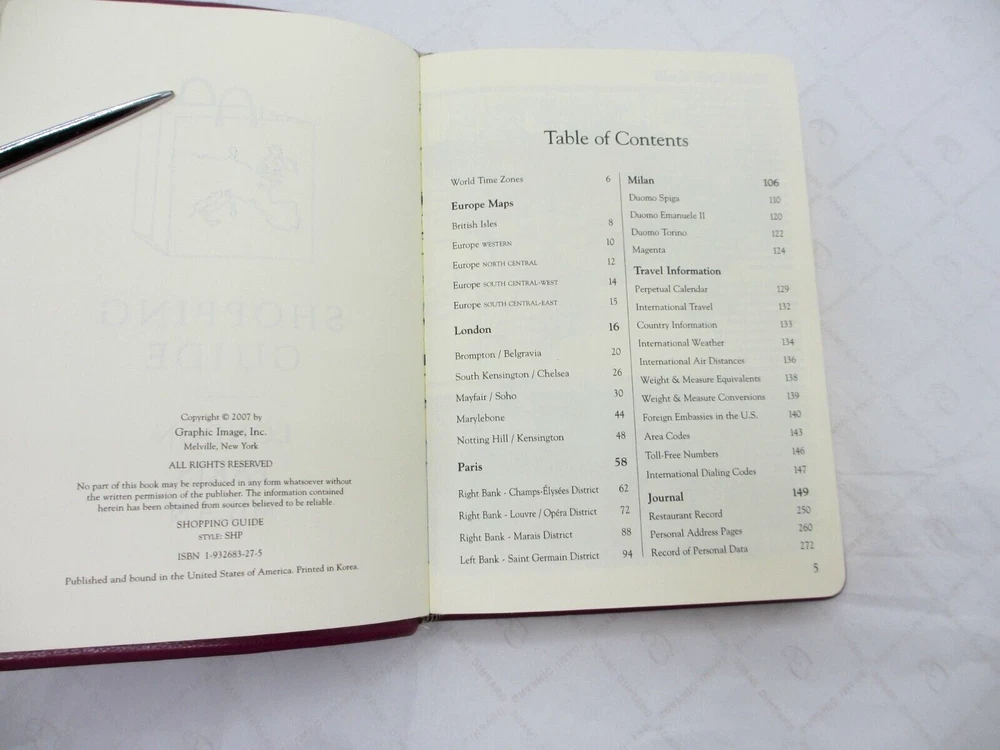 Copyright © 2007 by
Graphic Image, Inc.
Melville, New York
ALL RIGHTS RESERVED
No part of this book may be reproduced in any form whatsoever without
the written permission of the publisher. The information contained
herein has been obtained from sources believed to be reliable.
SHOPPING GUIDE
STYLE: SHP
ISBN 1-932683-27-5
Published and bound in the United States of America. Printed in Korea.
Table of Contents
World Time Zones 6
Europe Maps
British Isles 8
Europe WESTERN 10
Europe NORTH CENTRAL 12
Europe SOUTH CENTRAL-WEST 14
Europe SOUTH CENTRAL-EAST 15
London 16
Brompton / Belgravia 20
South Kensington / Chelsea 26
Mayfair / Soho 30
Marylebone 44
Notting Hill / Kensington 48
Paris 58
Right Bank - Champs-Élysées District 62
Right Bank - Louvre / Opéra District 72
Right Bank - Marais District 88
Left Bank - Saint Germain District 94
Milan 106
Duomo Spiga 110
Duomo Emanuele II 120
Duomo Torino 122
Magenta 124
Travel Information
Perpetual Calendar 129
International Travel 132
Country Information 133
International Weather 134
International Air Distances 136
Weight & Measure Equivalents 138
Weight & Measure Conversions 139
Foreign Embassies in the U.S. 140
Area Codes 143
Toll-Free Numbers 146
International Dialing Codes 147
Journal 149
Restaurant Record 250
Personal Address Pages 260
Record of Personal Data 272
5
SHOPPING
GUIDE